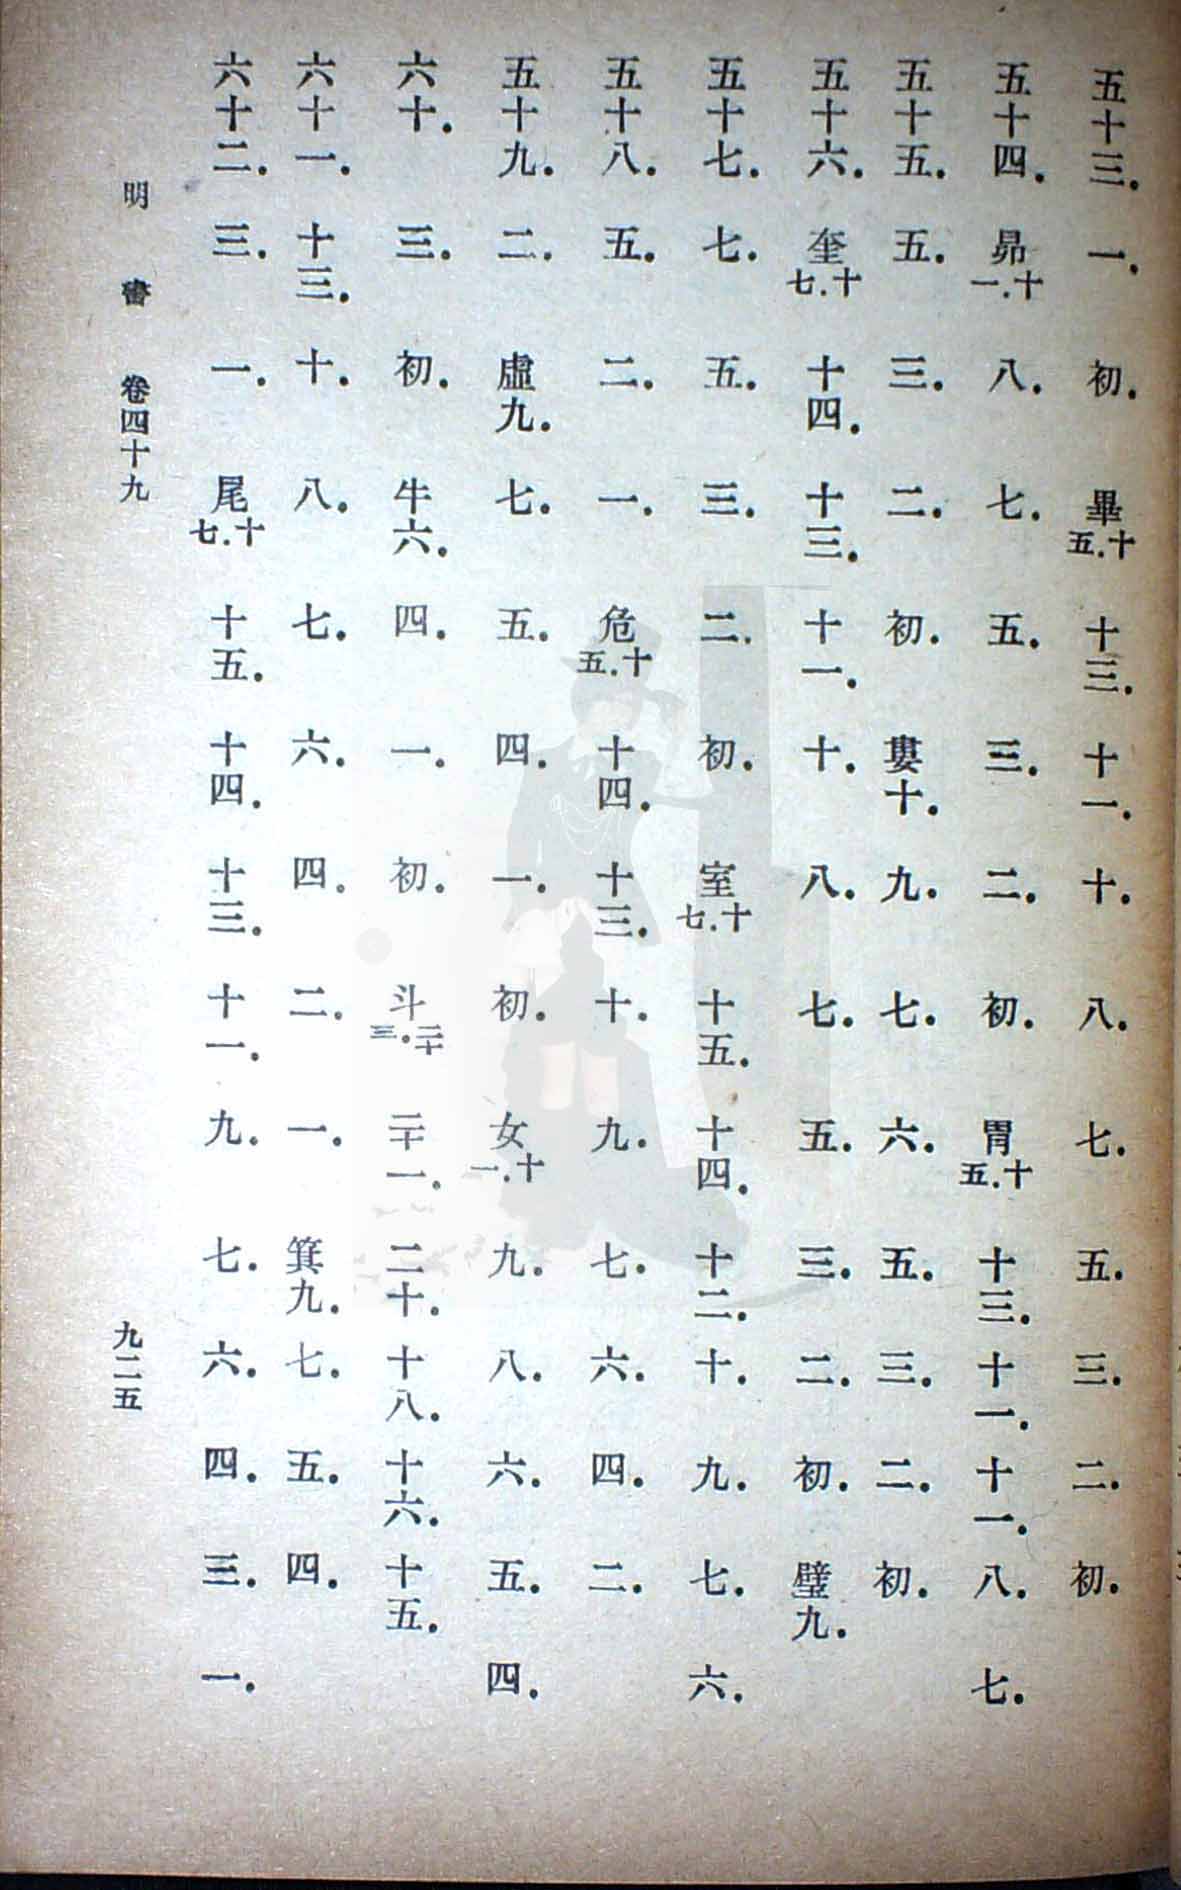 五十三．一．初．畢十．五十三．十一．十．八．七．五．三．二．初．
五十四．昴十．一八．七．五．三．二．初．胃十．五十三．十一．十一．八．七．
五十五．五．三．二．初．婁十．九．七．六．五．三．二．初．
五十六．奎十．七十四．十三．十一．十．八．七．五．三．二．初．璧九．
五十七．七．五．三．二．初．室十．七十五．十四．十二．十．九．七．六．
五十八．五．二．一．危十．五十四．十三．十．九．七．六．四．二．
五十九．二．虛九．七．五．四．一．初．女十．一九．八．六．五．四．
六十．三．初．牛六．四．一．初．斗二十．三二十一．二十．十八．十六．十五．
六十一．十三．十．八．七．六．四．二．一．箕九．七．五．四．
六十二．三．一．尾十．七十五．十四．十三．十一．九．七．六．四．三．一．
明書 卷四十九 九二五